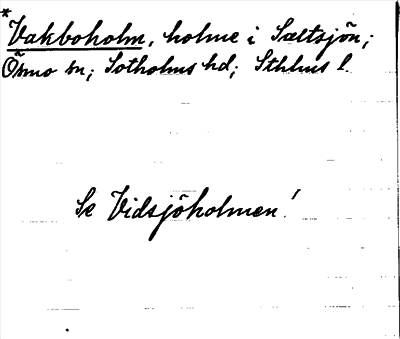 *
Vakboholm, holme i Saltsjön;
Ösmo sn; Sotholms hd; Sthlms l.
Se Vidsjöholmen!